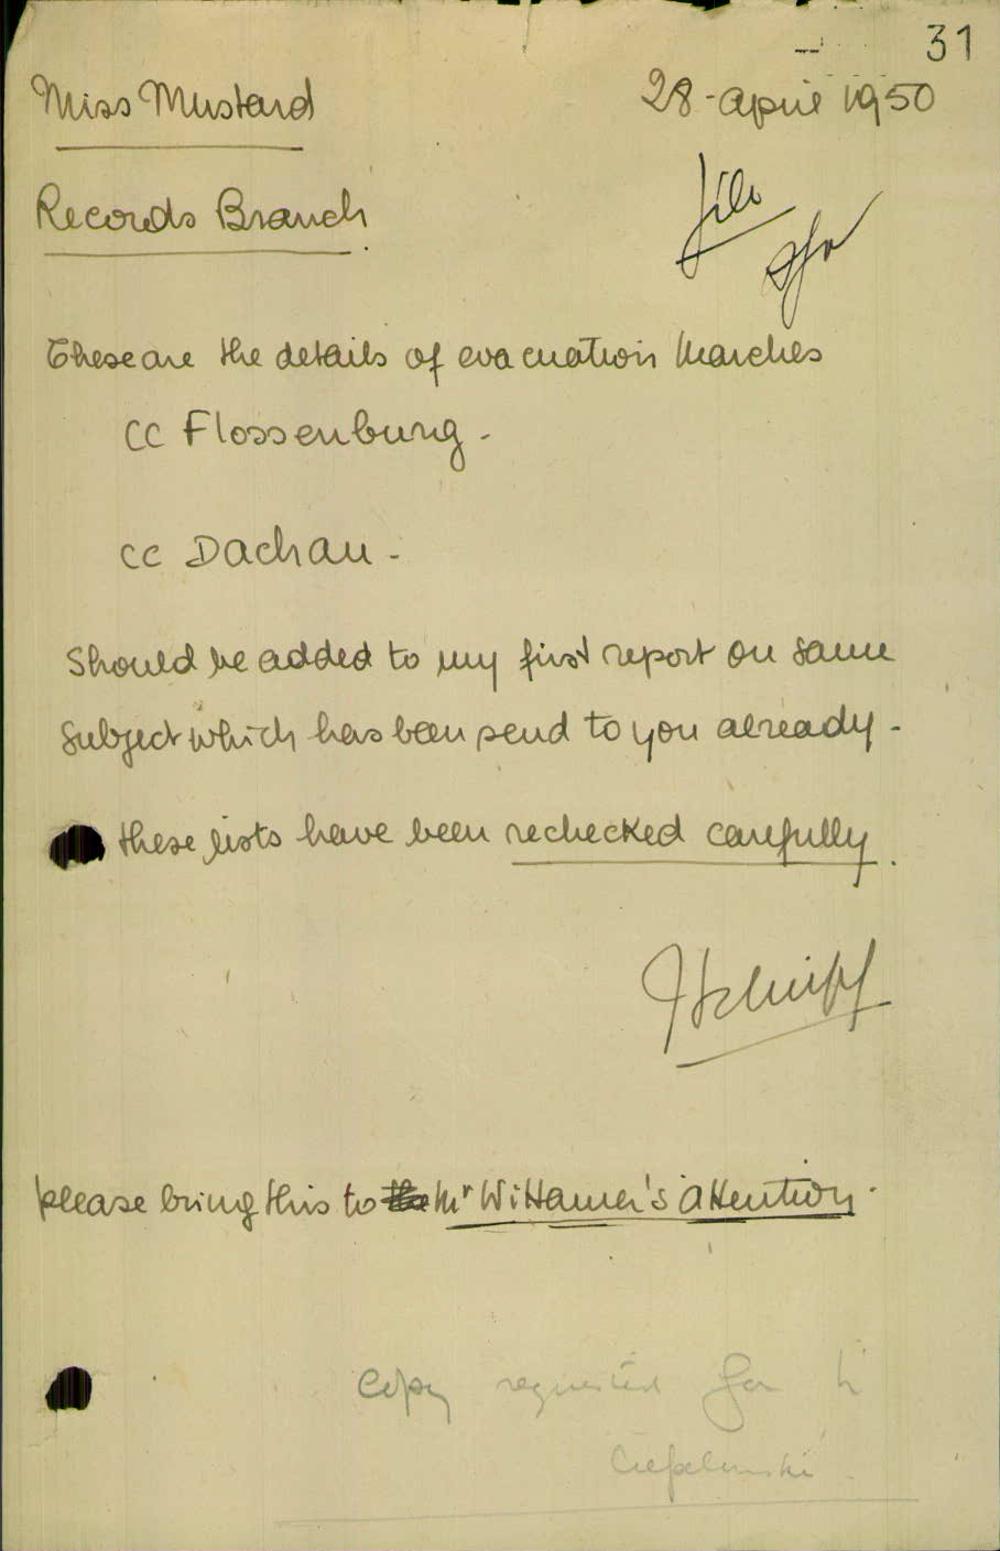 31
Miss Mustard
28-april 1950
Records Branch
file
These are the details of evacuation Marches
CC Flossenburg -
CC Dachau -
Should be added to my first report on same
subject which has been send to you already -
these lists have been rechecked carefully.
please bring this to the Mr Wittamer's attention.
Copy requested for